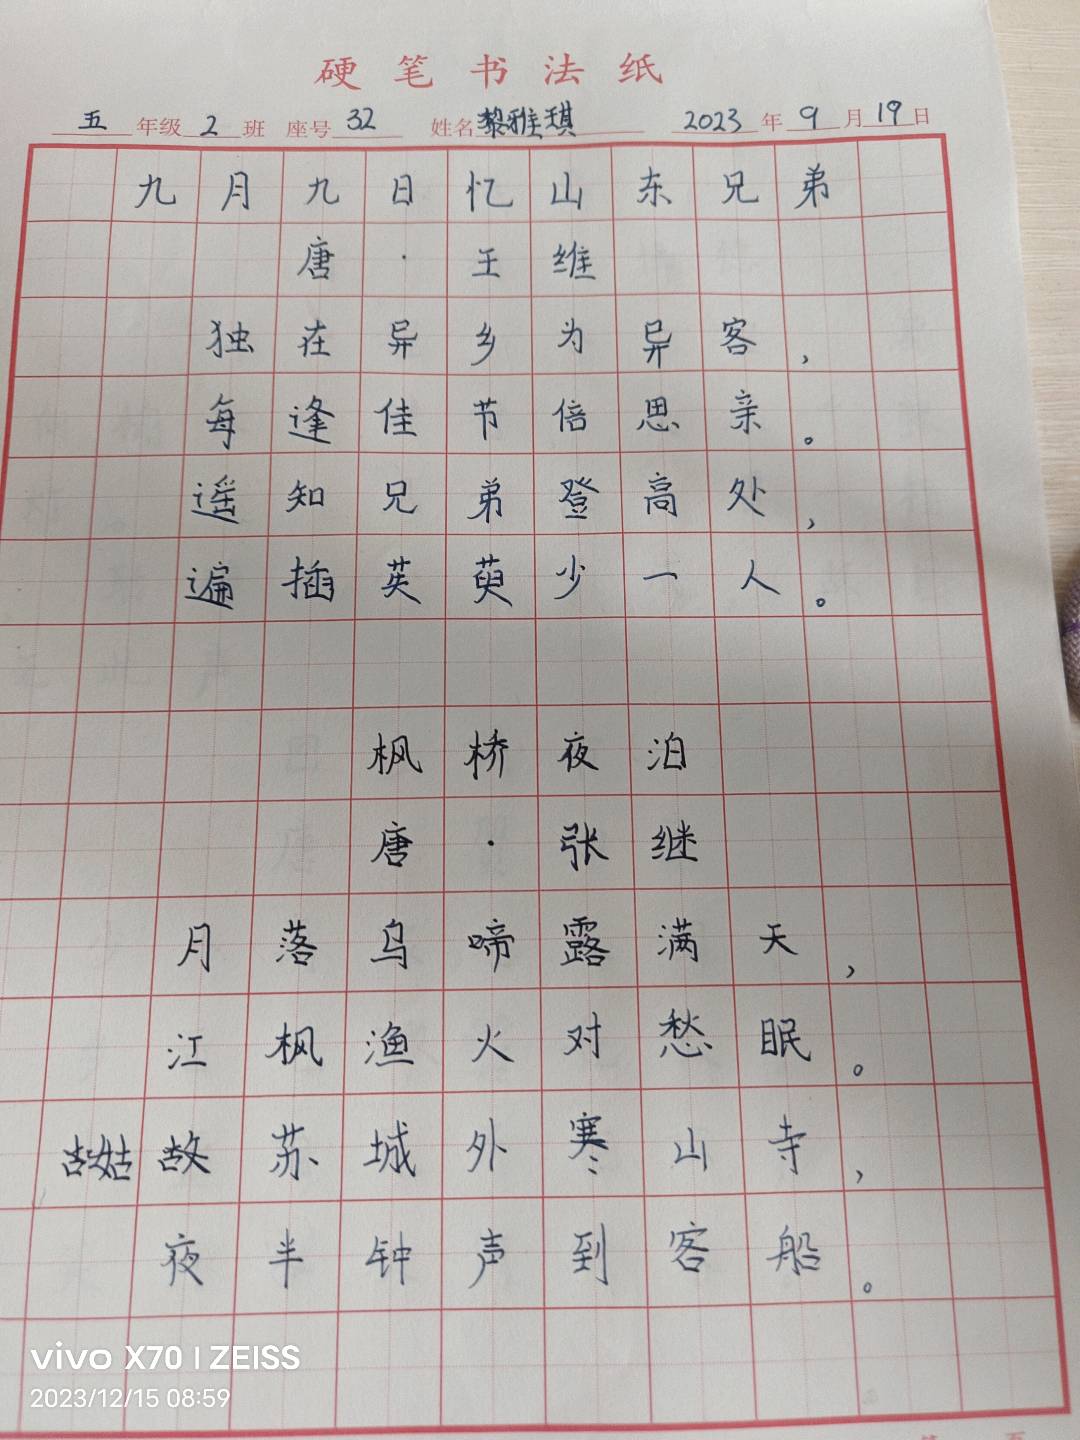 硬笔书法纸
五年级2班 座号32 姓名黎雅琪 2023年9月19日
九月九日忆山东兄弟
唐·王维
独在异乡为异客，
每逢佳节倍思亲。
遥知兄弟登高处，
遍插英萸少一人。
枫桥夜泊
唐·张继
月落乌啼露满天，
江枫渔火对愁眠。
古姑故苏城外寒山寺，
夜半钟声到客船。
vivo X70 | ZEISS
2023/12/15 08:59